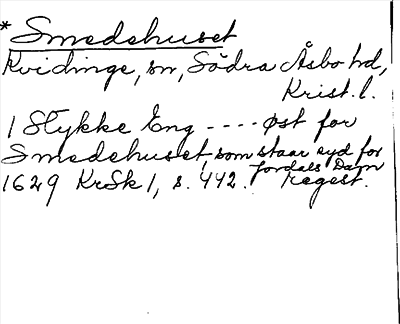 * Smedehuset
Kvidinge, sn, Södra Åsbo hd,
Krist. l.
1 Stykke Eng ---- øst for
Smedehuset, som staar syd for
Jordals Dam
1629 KrSk 1, s. 442. regest.